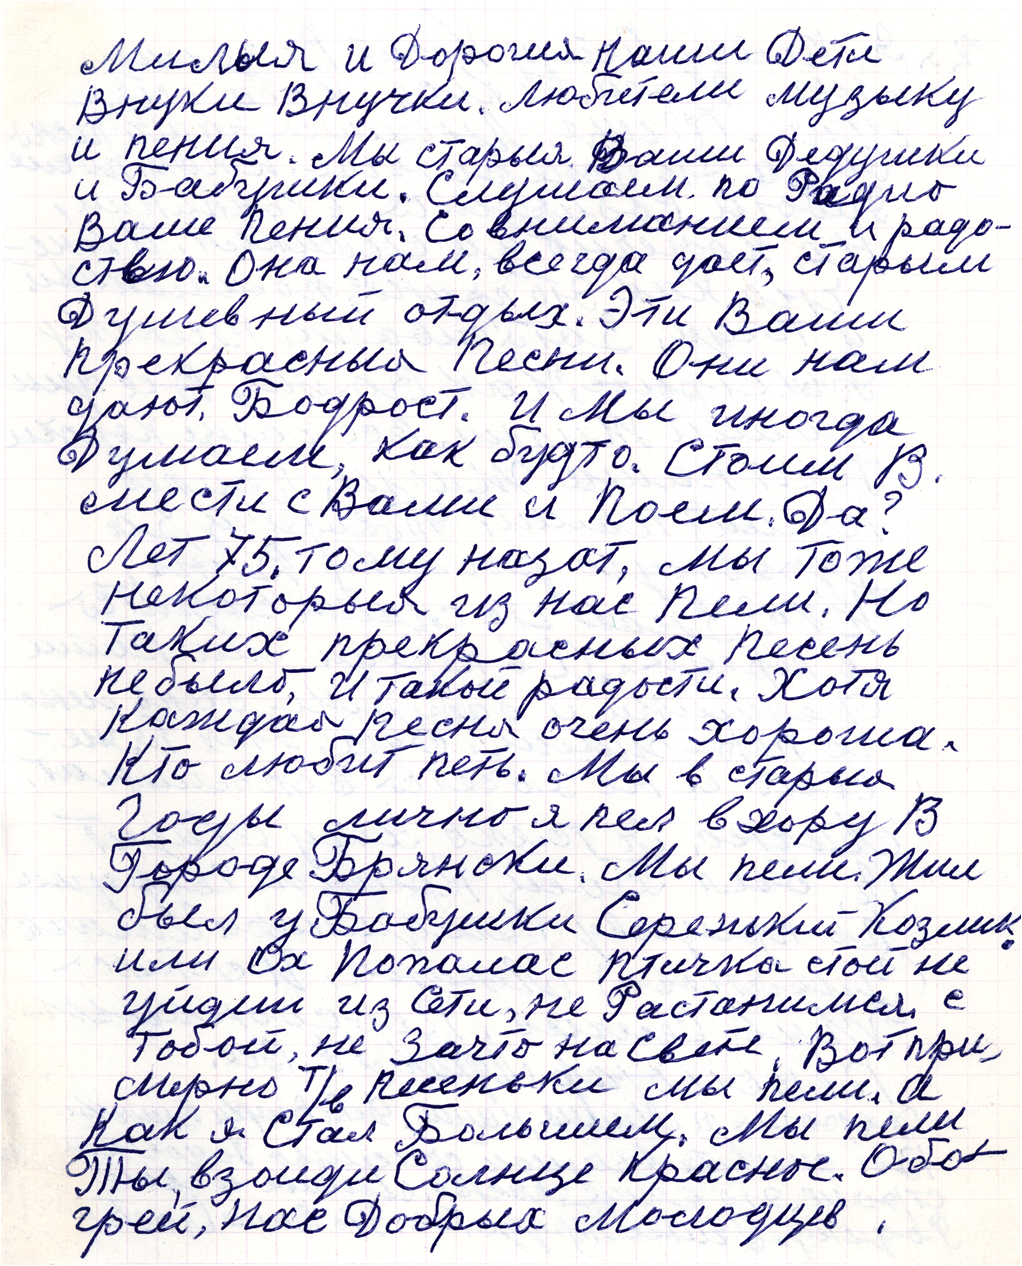 Милыя и Дорогия наши Дети
Внуки Внучки. Любители музыку
и пения. Мы старыя Ваши Дедушки
и Бабушки. Слушаем по Радио
Ваше пения. Совниманием и радо-
ствою. Она нам, всегда дает, старым
Душевный отдых. Эти Ваши
прекрасныя песни. Они нам
дают. Бодрост. И Мы иногда
Думаем, как будто. Стоим В.
мести с Вами и Поем. Да?
Лет 75. тому назат, мы тоже
некоторыя из нас пели. Но
таких прекрасных песень
небыло, и такой радости. Хотя
каждая песня очень хороша.
Кто любит петь. Мы в старыя
Годы лично я пел в хору В
Городе Брянски. Мы пели. Жил
был у Бабушки Серенький Козлик.
или Ох Попалас птичка стой не
уйдиш из Сети, не Растанимся с
тобой, не Зачто насвете. Вот при,
мерно т/в песеньки мы пели. а
Как я Стал Большим. Мы пели
Ты, взоиди Солнце Красное. Обо
грей, нас Добрых Молодцев.